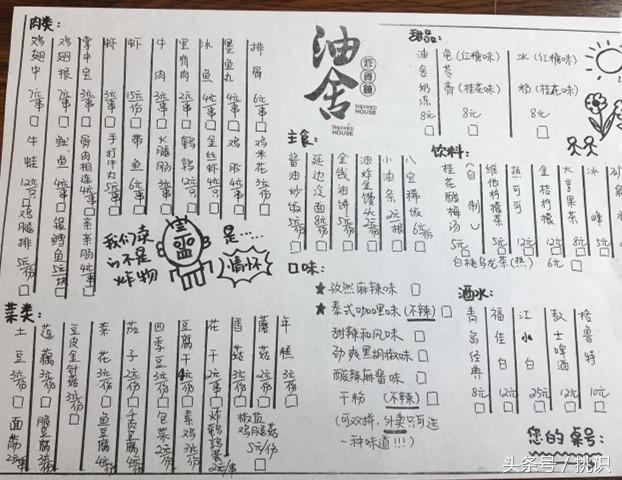 肉类:
鸡翅中 7元/串
鸡翅根
掌中宝 3元/串
虾 3元/串
虾 15元/份
牛肉 3元/串
里脊肉 2元/串
冰鱼 4元/串
墨鱼丸 4元/串
排骨 6元/串
牛蛙 12元/只
鱿鱼 4元/串
骨肉相连 4元/串
手打牛丸 5元/串
带鱼 6元/串
火腿肠 3元/串
鹌鹑 12元/只
金丝虾 4元/只
鸡胗
鸡米花
鸡腿排 5元/份
银鳕鱼 5元/块
亲亲肠 4元/串
油舍
炸货铺
THEFRIED HOUSE
THEFRIED HOUSE
我们卖的不是炸物
是…
情怀
甜品:
油舍奶冻 8元
龟苓膏 (红糖味) (桂花味) 8元
冰粉 (红糖味) (桂花味) 8元
主食:
酱油炒饭 8元/份
延边冷面 8元/份
金钱油饼 5元/份
油炸金馒头 2元/份
小油条 2元/根
八宝稀饭 6元/份
饮料:
桂花酸梅汤 (自制) 5元
维伯柠檬茶 5元
热可可 12元
金桔柠檬 12元
大亨果茶 8元
冰峰 5元
白桃乌龙茶(热) 6元
口味:
★孜然麻辣味
★泰式咖喱味(不辣)
甜辣和风味
劲爽黑胡椒味
酸辣麻酱味
干粉 (不辣)
(可双拼,外卖只可选
一种味道!!!)
酒水:
青岛经典 8元
福佳白 12元
江小白 25元
教士啤酒 12元
格鲁特 10元
菜类:
土豆 3元/份
莲藕 3元/份
豆皮金针菇 3元/份
菜花 3元/份
茄子 2元/份
四季豆 3元/份
豆腐干 4元/份
花干 2元/串
香菇 3元/份
蘑菇 2元/份
年糕 3元/份
面筋 2元/串
脆豆腐 3元/份
鱼豆腐 4元/份
千页豆腐 4元/份
包菜 2元/份
素鸡 3元/份
炸鹌鹑蛋 2元/串
椒盐鸡腿菇 5元/份
您的桌号:
头条号/挑识